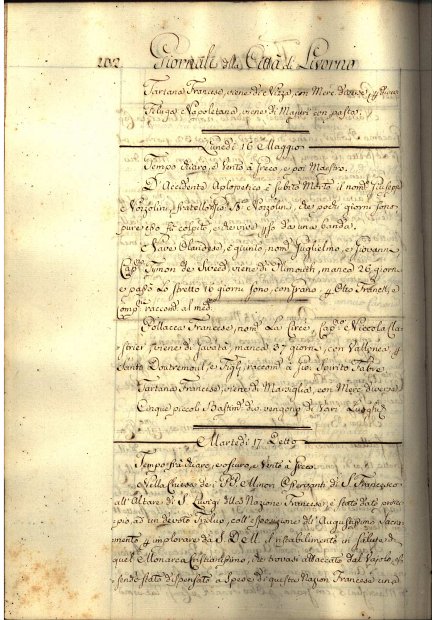 202 Giornale della Città di Livorno
Tartana Francese, viene di Nizza, con Merc. diverse,
Filuga Napoletana, viene di Majuri con pasta.
Lunedì 16 Maggio
Tempo chiaro, e Vento à Greco, e poi Maestro.
D'Accidente Apopletico è subito Morto il nom. Giuseppe
Norzolini, fratello Norzolini, che pochi giorni sono
pure colpito, e da una banda.
Nave Olandese, è giunto, nom. Guglielmo, e Giovanni
Cap. Tymon de viene di Plimouth, manca 26 giorni
e passò lo Stretto 16 giorni sono, con grano, Otto Franck, e
Comp. raccom. al med.
Pollacca Francese, nom. La Circe, Cap. Niccola
viene di manca 37 giorni, con Vallonea
Santo e Figli, raccom. à Gio. Spirito Fabre
Tartana Francese, viene di Marsiglia, con Merc. diverse
Cinque piccoli Bastim. che vengono di Vari Luoghi
Martedì 17 Detto
Tempo frà chiaro, e oscuro, e Vento à Greco.
Nella Chiesa de PP. Minori Osservanti di S. Francesco
all'Altare di S. Luigi della Nazione Francese è stato dato princi-
pio, ad un devoto Triduo, coll'esposizione dell'Augustissimo Sacra-
mento implorare da S. D. M. il ristabilimento in salute di
quel Monarca Cristianissimo, che trovasi attaccato dal Vajolo,
sendo stata dispensata à Spese di questa Nazion Francese una